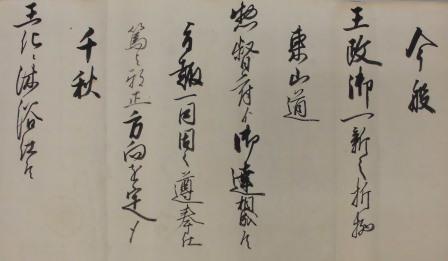 今般
王政御一新之折柄
東山道
惣督府ゟ御達相成候
趣一同固く遵奉仕
篤と邪正方向を定メ
千秋
王化ニ沐浴仕候